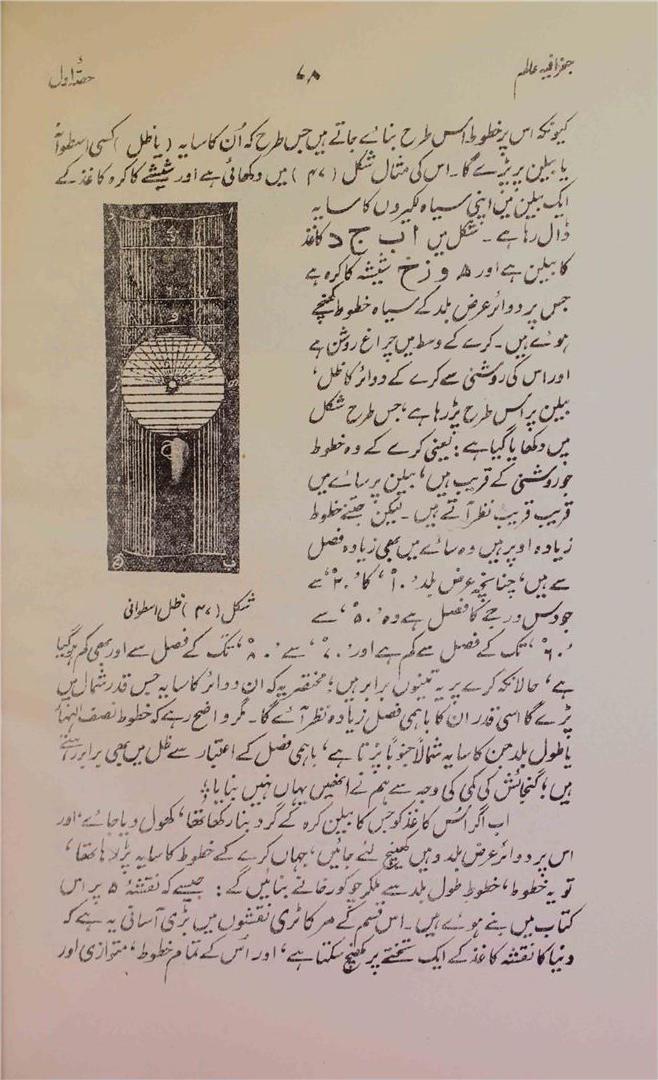 جغرافیہ عالم
۷۸
حصۂ اول
کیونکہ اس پر خطوط اس طرح بنائے جاتے ہیں جس طرح کہ اُن کا سایہ (یا ظل) کسی اسطوانہ
یا بیلن پر پڑے گا۔ اس کی مثال شکل (۴۷) میں دکھائی ہے اور شیشے کا کرہ کاغذ کے
ایک بیلن میں اپنی سیاہ لکیروں کا سایہ
ڈال رہا ہے۔ شکل میں ا ب ج د کاغذ
کا بیلن ہے اور ہ و ز ح شیشہ کا کرہ ہے
جس پر دوائر عرض بلد کے سیاہ خطوط کھنچے
ہوئے ہیں۔ کرے کے وسط میں چراغ روشن ہے
اور اس کی روشنی سے کرے کے دوائر کا ظل،
بیلن پر اس طرح پڑ رہا ہے، جس طرح شکل
میں دکھایا گیا ہے: یعنی کرے کے وہ خطوط
جو روشنی کے قریب ہیں، بیلن پر سائے میں
قریب قریب نظر آتے ہیں۔ لیکن جتنے خطوط
زیادہ اوپر ہیں وہ سائے میں بھی زیادہ فصل
سے ہیں، چنانچہ عرض بلد ۱۰°، کا ۲۰°، سے
جو دس درجے کا فصل ہے وہ ۵۰°، سے
شکل (۴۷) ظل اسطوانی
۶۰°، تک کے فصل سے کم ہے اور ۷۰°، سے ۸۰°، تک کے فصل سے اور بھی کم ہو گیا
ہے، حالانکہ کرے پر یہ تینوں برابر ہیں؛ مختصر یہ کہ ان دوائر کا سایہ جس قدر شمال میں
پڑے گا اسی قدر ان کا باہمی فصل زیادہ نظر آئے گا۔ مگر واضح رہے کہ خطوط نصف النہار
یا طول بلد جن کا سایہ شمالاً جنوباً پڑتا ہے، باہمی فصل کے اعتبار سے ظل میں بھی برابر رہتے
ہیں؛ گنجائش کی کمی کی وجہ سے ہم نے انھیں یہاں نہیں بنایا؛
اب اگر اُس کاغذ کو جس کا بیلن کرہ کے گرد بنا رکھا تھا، کھول دیا جائے، اور
اس پر دوائر عرض بلد وہیں کھینچ لئے جائیں، جہاں کرے کے خطوط کا سایہ پڑ رہا تھا،
تو یہ خطوط، خطوط طول بلد سے ملکر چوکور خانے بنائیں گے: جیسے کہ نقشہ ۵ پر اس
کتاب میں بنے ہوئے ہیں۔ اس قسم کے مرکاٹری نقشوں میں بڑی آسانی یہ ہے کہ
دنیا کا نقشہ کاغذ کے ایک تختے پر کھنچ سکتا ہے، اور اُس کے تمام خطوط، متوازی اور